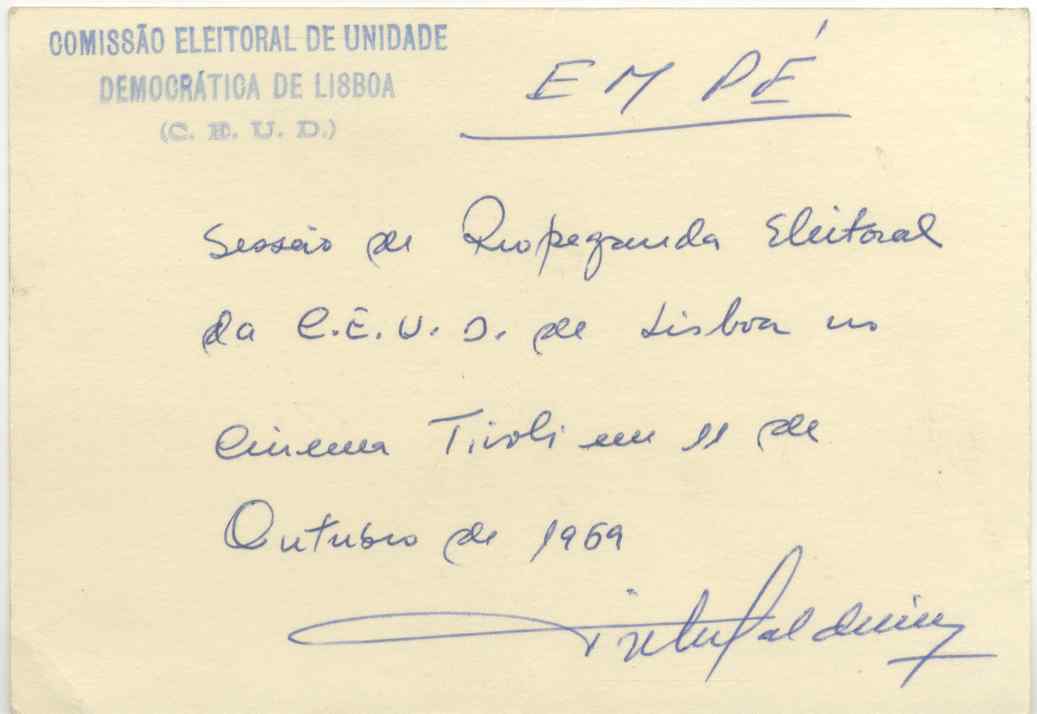 COMISSÃO ELEITORAL DE UNIDADE
DEMOCRÁTICA DE LISBOA
(C. E. U. D.)
EM PÉ
Sessão de Propaganda Eleitoral
da C.E.U.D. de Lisboa no
Cinema Tivoli em 11 de
Outubro de 1969